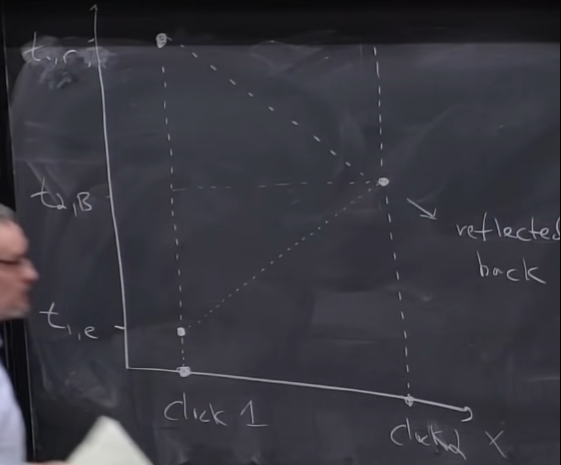 t1,r
t2,B
reflected
back
t1,e
click 1
click 2
x